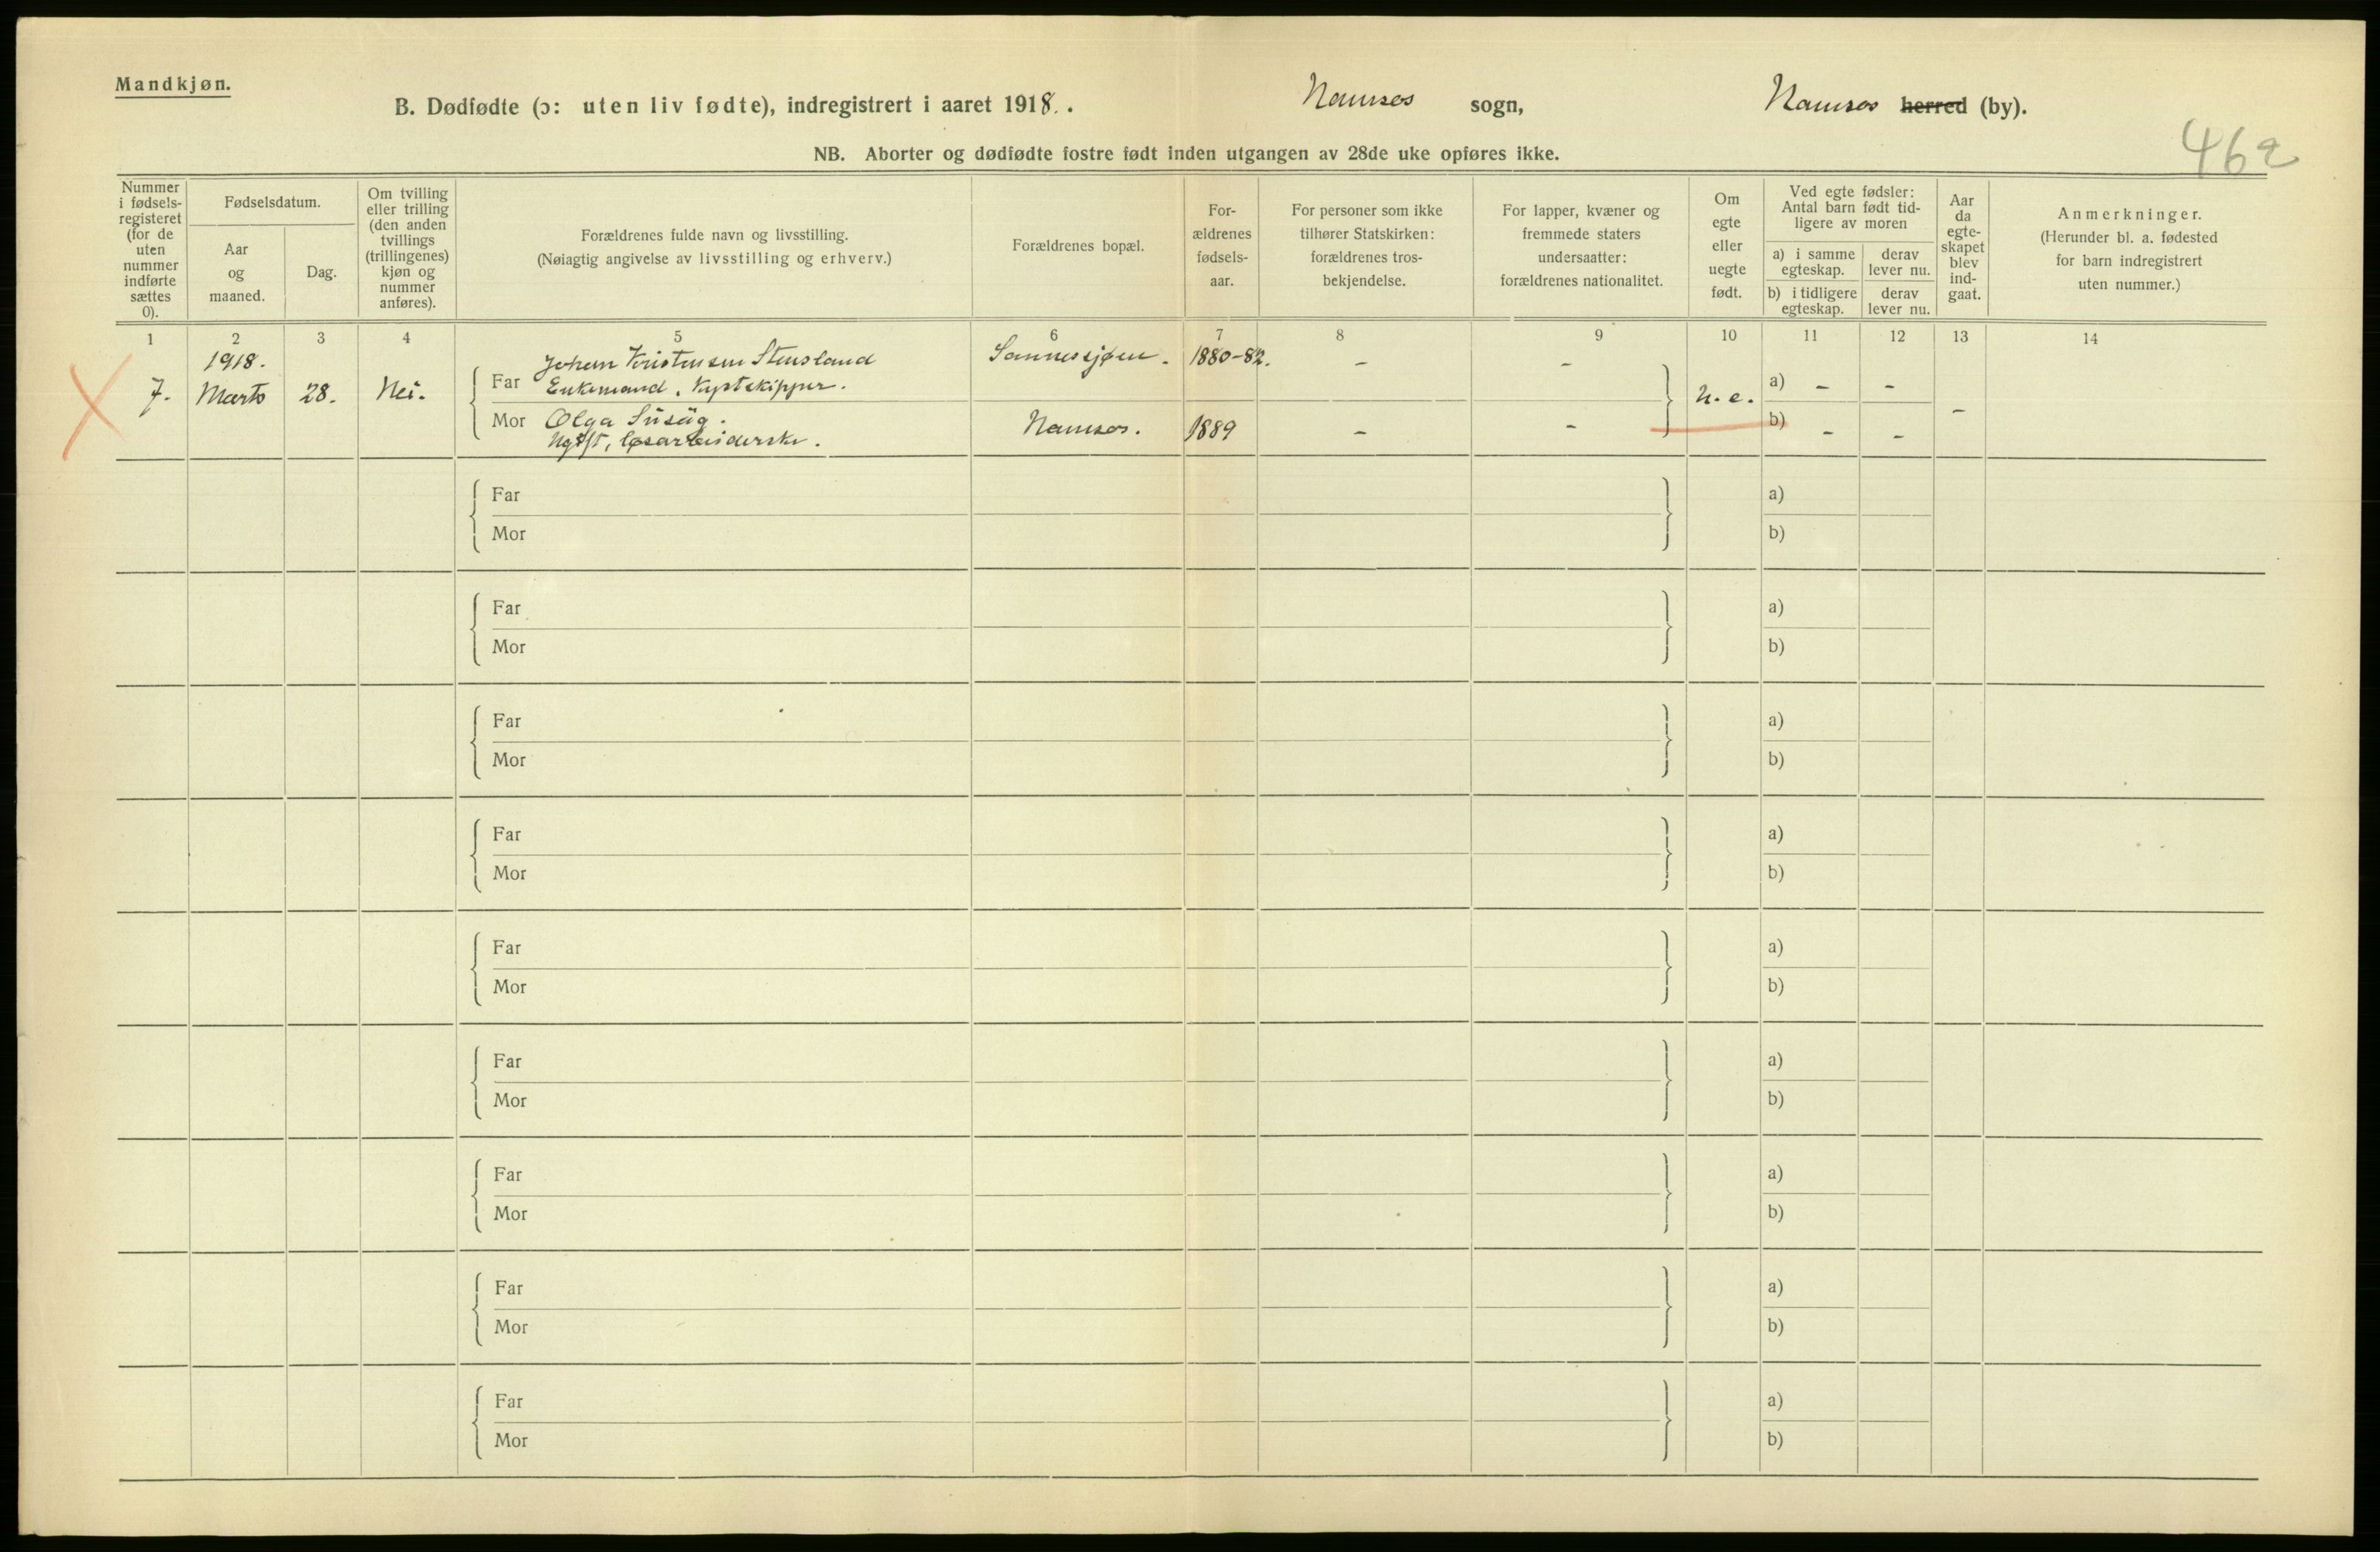 Mandkjøn.
B. Dødfødte (ɔ: uten liv fødte), indregistrert i aaret 1918. . Namsos sogn, Namsos herred (by).
462
NB. Aborter og dødfødte fostre født inden utgangen av 28de uke opføres ikke.
Nummer
i fødsels-
registeret
(for de
uten
nummer
indførte
sættes
0).
Fødselsdatum.
Aar
og
maaned.
Dag.
Om tvilling
eller trilling
(den anden
tvillings
(trillingenes)
kjøn og
nummer
anføres).
Forældrenes fulde navn og livsstilling.
(Nøiagtig angivelse av livsstilling og erhverv.)
Forældrenes bopæl.
For-
ældrenes
fødsels-
aar.
For personer som ikke
tilhører Statskirken:
forældrenes tros-
bekjendelse.
For lapper, kvæner og
fremmede staters
undersaatter:
forældrenes nationalitet.
Om
egte
eller
uegte
født.
Ved egte fødsler:
Antal barn født tid-
ligere av moren
a) i samme
egteskap.
derav
lever nu.
b) i tidligere
egteskap.
derav
lever nu.
Aar
da
egte-
skapet
blev
ind-
gaat.
Anmerkninger.
(Herunder bl. a. fødested
for barn indregistrert
uten nummer.)
1 2 3 4 5 6 7 8 9 10 11 12 13 14
1918.
7. Marts 28. Nei.
Johan Kristensen Stensland Sannessjøen. 1880-82. - -
Far Enkemand, Kystskipper.
U. e. a) - -
Mor Olga Namsos. 1889 - - b) - - -
Ugift, løsarbeiderske.
Far a)
Mor b)
Far a)
Mor b)
Far a)
Mor b)
Far a)
Mor b)
Far a)
Mor b)
Far a)
Mor b)
Far a)
Mor b)
Far a)
Mor b)
Far a)
Mor b)